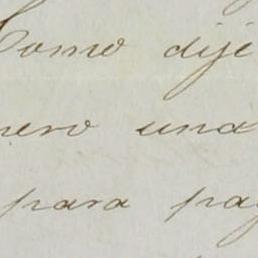 Como dije
nero una
para pa